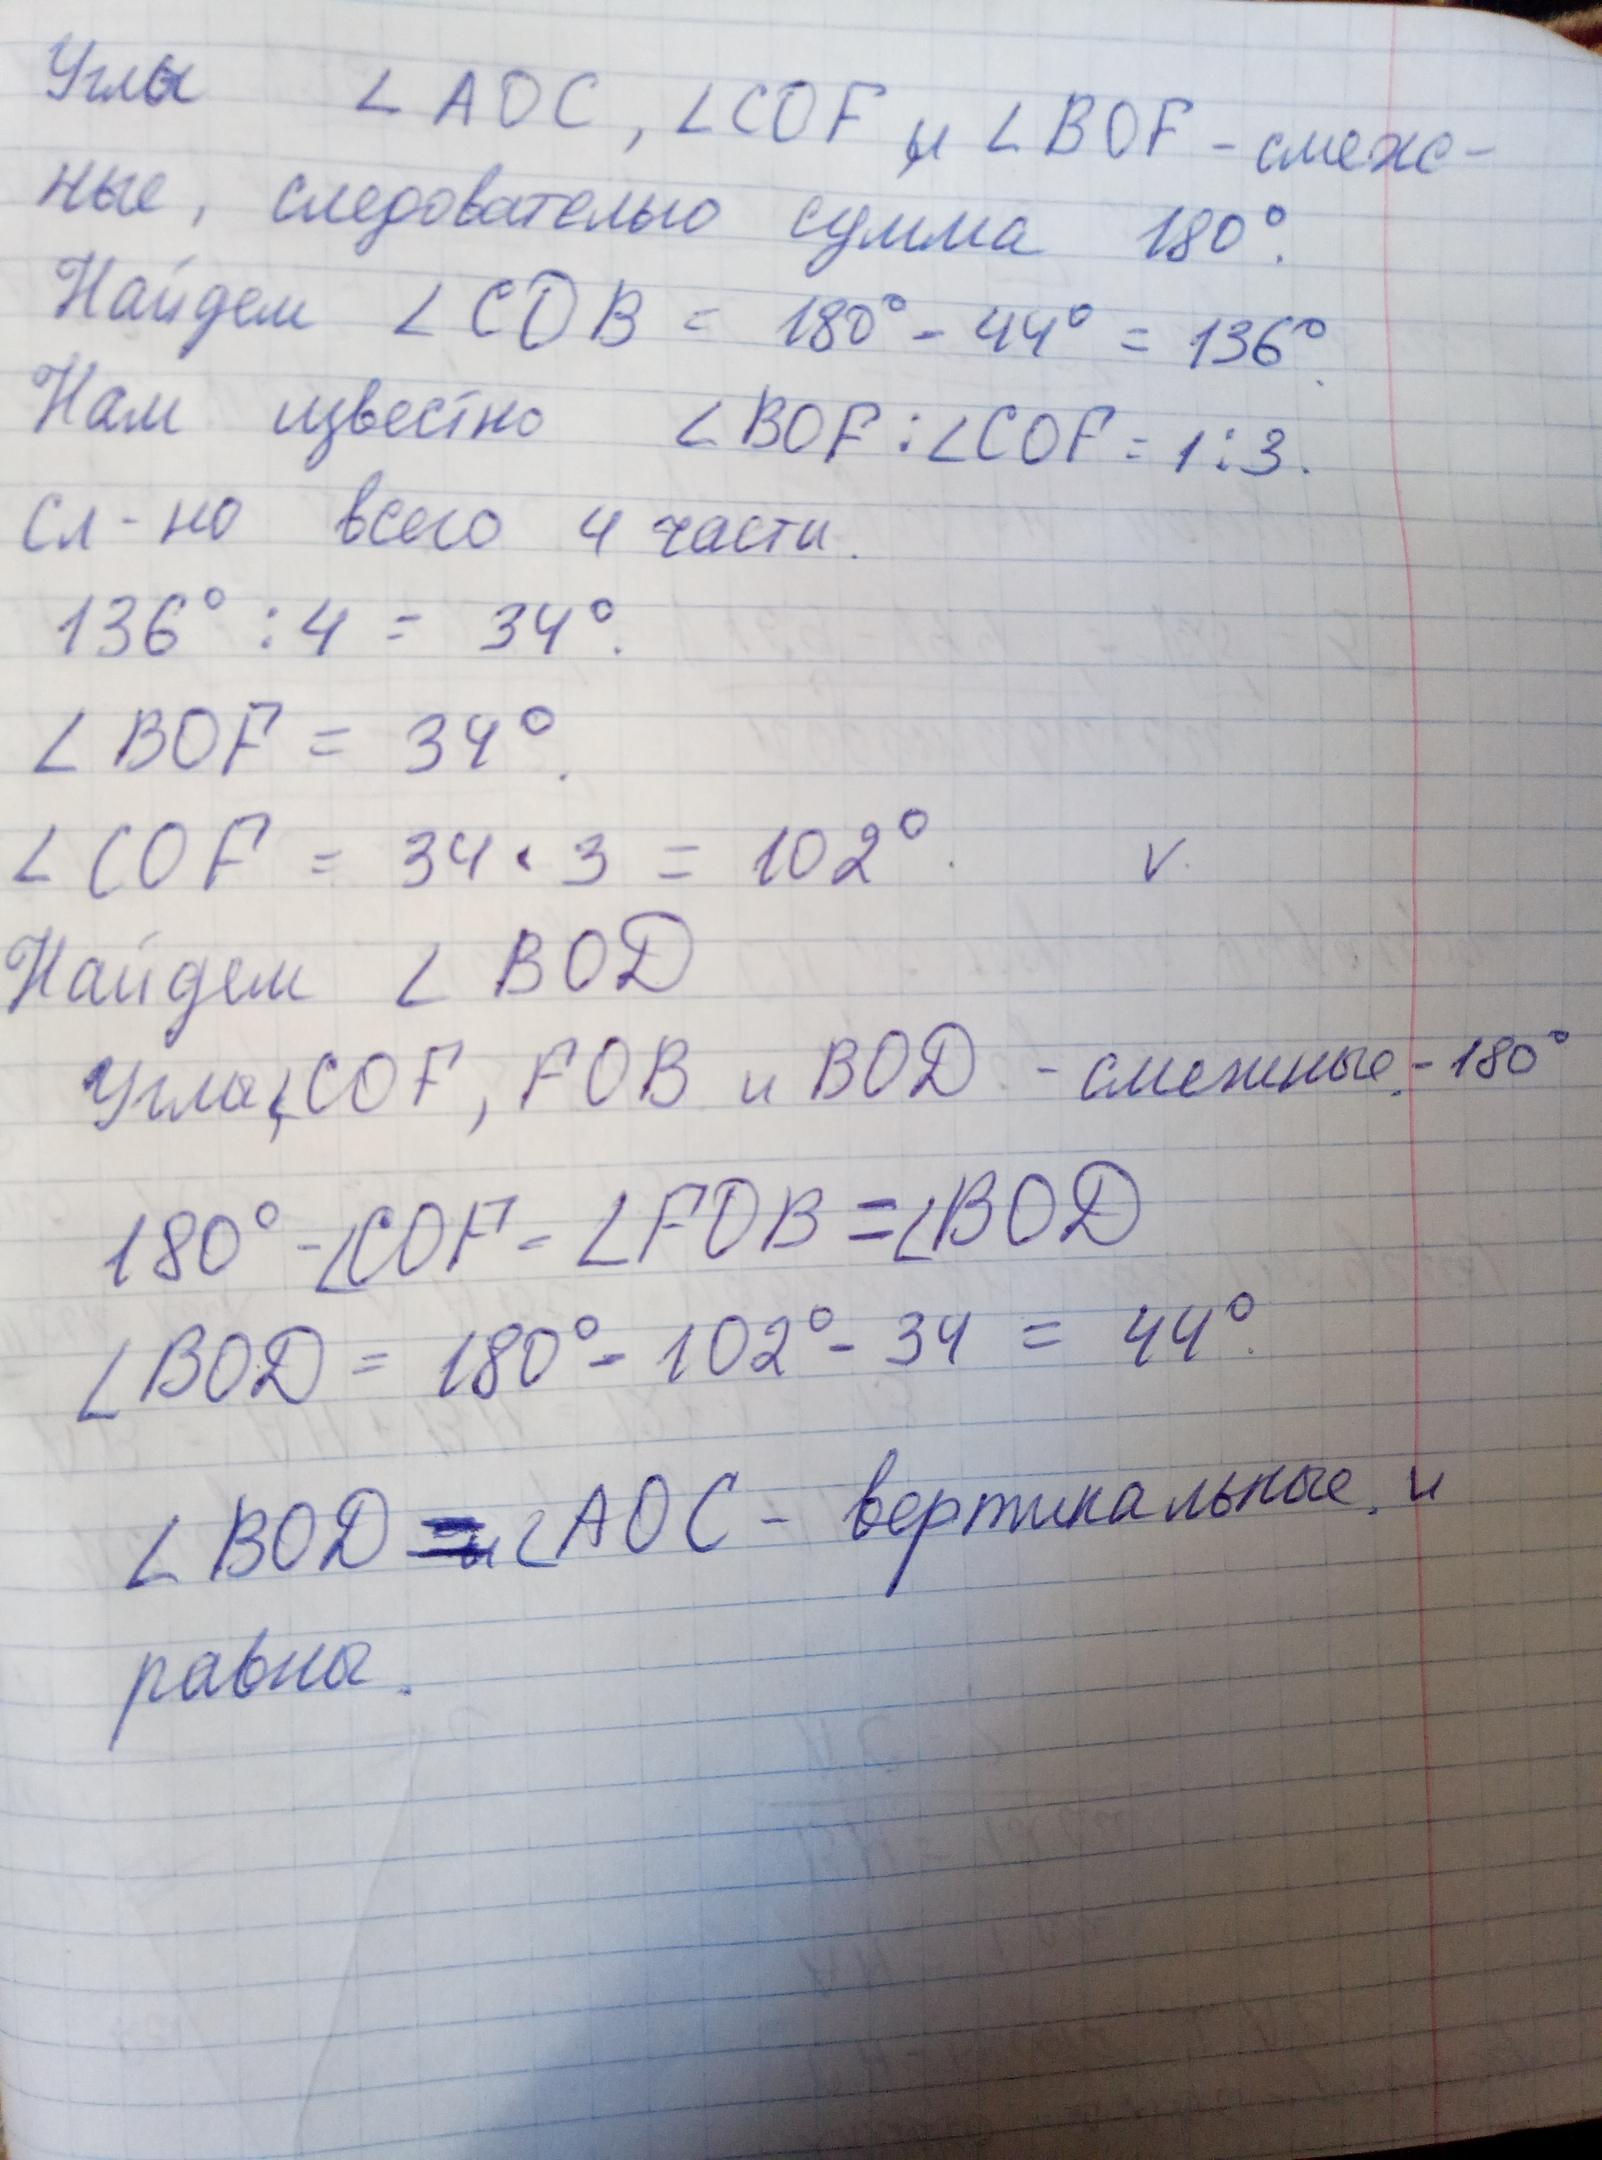 Углы ∠AOC, ∠COF и ∠BOF - смеж-
ные, следовательно сумма 180°.
Найдем ∠COB = 180° - 44° = 136°.
Нам известно ∠BOF : ∠COF = 1 : 3.
Сл-но всего 4 части.
136° : 4 = 34°.
∠BOF = 34°.
∠COF = 34 · 3 = 102°. V.
Найдем ∠BOD
Углы ∠COF, FOB и BOD - смежные. - 180°
180° - ∠COF - ∠FOB = ∠BOD
∠BOD = 180° - 102° - 34 = 44°.
∠BOD и ∠AOC - вертикальные. и
равны.